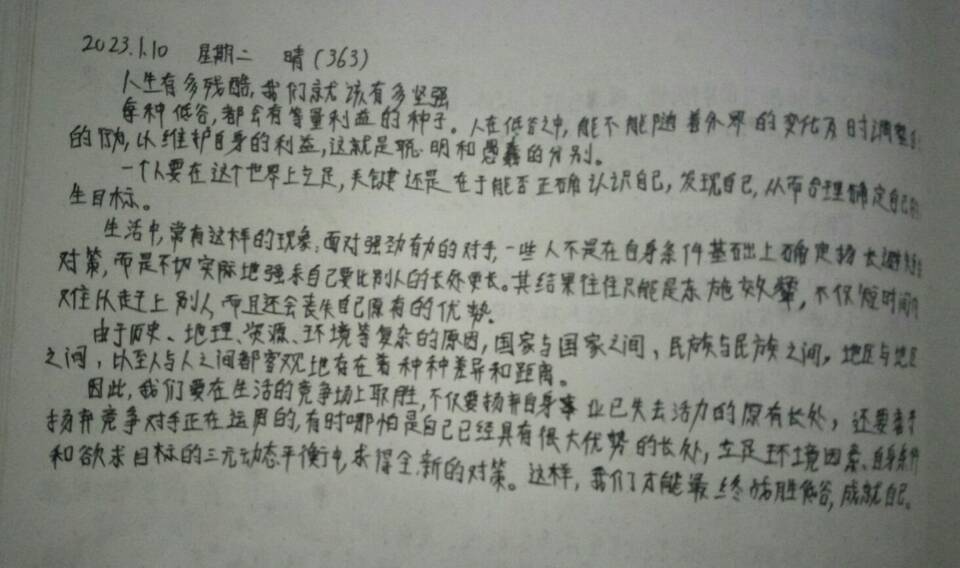 2023.1.10 星期二 晴(363)
人生有多残酷,我们就该有多坚强
每种低谷,都含有等量利益的种子。人在低谷之中,能不能随着外界的变化及时调整自
的行为,以维护自身的利益,这就是聪明和愚蠢的分别。
一个人要在这个世界上立足,关键还是在于能否正确认识自己,发现自己,从而合理确定自己的
生目标。
生活中,常有这样的现象:面对强劲有力的对手,一些人不是在自身条件基础上确定扬长避短
对策,而是不切实际地强求自己要比别人的长处更长。其结果往往只能是东施效颦,不仅短时间内
难以赶上别人,而且还会丧失自己原有的优势。
由于历史、地理、资源、环境等复杂的原因,国家与国家之间、民族与民族之间,地区与地区
之间,以至人与人之间都客观地存在着种种差异和距离。
因此,我们要在生活的竞争场上取胜,不仅要扬弃自身事业已失去活力的原有长处,还要善于
扬弃竞争对手正在运用的,有时哪怕是自己已经具有很大优势的长处,立足环境因素、自身条件
和欲求目标的三元动态平衡中,求得全新的对策。这样,我们才能最终战胜低谷,成就自己。